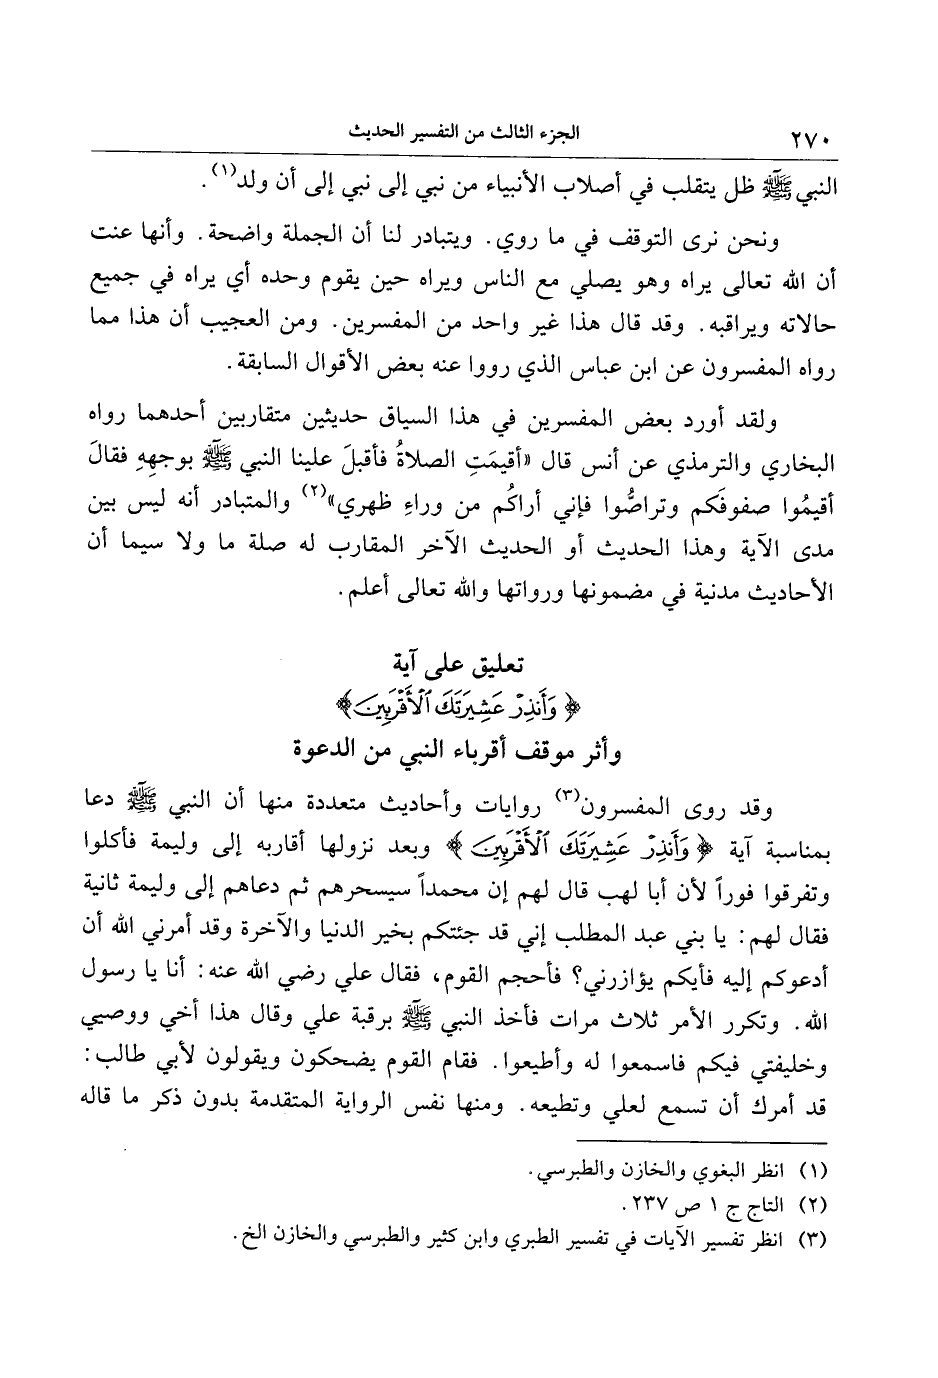 ٢٧٠ الجزء الثالث من التفسير الحديث
النبي ﷺ ظل يتقلب في أصلاب الأنبياء من نبي إلى نبي إلى أن ولد(١).
ونحن نرى التوقف في ما روي. ويتبادر لنا أن الجملة واضحة. وأنها عنت
أن الله تعالى يراه وهو يصلي مع الناس ويراه حين يقوم وحده أي يراه في جميع
حالاته ويراقبه. وقد قال هذا غير واحد من المفسرين. ومن العجيب أن هذا مما
رواه المفسرون عن ابن عباس الذي رووا عنه بعض الأقوال السابقة.
ولقد أورد بعض المفسرين في هذا السياق حديثين متقاربين أحدهما رواه
البخاري والترمذي عن أنس قال «أقيمَتِ الصلاةُ فأقبلَ علينا النبي ﷺ بوجهِهِ فقالَ
أقيمُوا صفوفَكم وتراصُّوا فإني أراكُم من وراءِ ظهري»(٢) والمتبادر أنه ليس بين
مدى الآية وهذا الحديث أو الحديث الآخر المقارب له صلة ما ولا سيما أن
الأحاديث مدنية في مضمونها ورواتها والله تعالى أعلم.
تعليق على آية
﴿ وَأَنذِرْ عَشِيرَتَكَ ٱلْأَقْرَبِينَ ﴾
وأثر موقف أقرباء النبي من الدعوة
وقد روى المفسرون(٣) روايات وأحاديث متعددة منها أن النبي ﷺ دعا
بمناسبة آية ﴿ وَأَنذِرْ عَشِيرَتَكَ ٱلْأَقْرَبِينَ ﴾ وبعد نزولها أقاربه إلى وليمة فأكلوا
وتفرقوا فوراً لأن أبا لهب قال لهم إن محمداً سيسحرهم ثم دعاهم إلى وليمة ثانية
فقال لهم: يا بني عبد المطلب إني قد جئتكم بخير الدنيا والآخرة وقد أمرني الله أن
أدعوكم إليه فأيكم يؤازرني؟ فأحجم القوم، فقال علي رضي الله عنه: أنا يا رسول
الله. وتكرر الأمر ثلاث مرات فأخذ النبي ﷺ برقبة علي وقال هذا أخي ووصيي
وخليفتي فيكم فاسمعوا له وأطيعوا. فقام القوم يضحكون ويقولون لأبي طالب:
قد أمرك أن تسمع لعلي وتطيعه. ومنها نفس الرواية المتقدمة بدون ذكر ما قاله
(١) انظر البغوي والخازن والطبرسي.
(٢) التاج ج ١ ص ٢٣٧.
(٣) انظر تفسير الآيات في تفسير الطبري وابن كثير والطبرسي والخازن الخ.